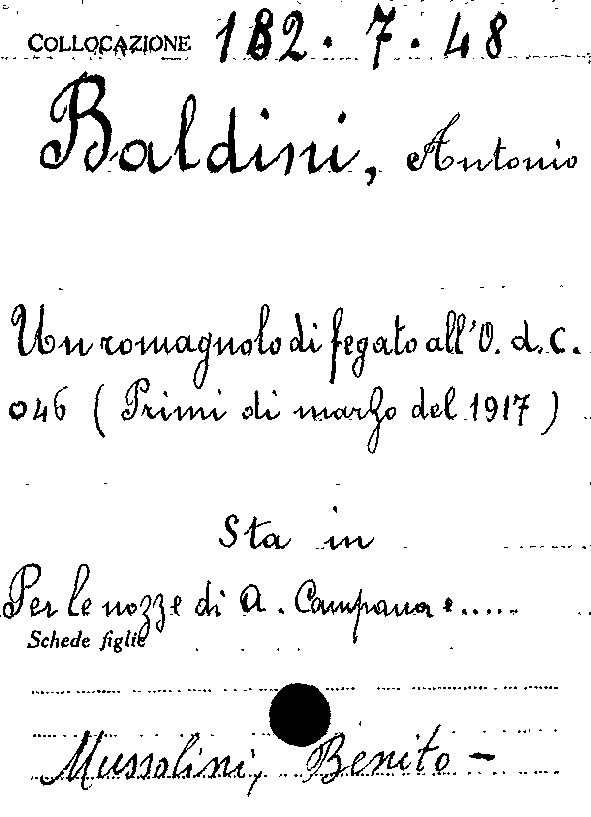 COLLOCAZIONE 182.7.48
Baldini, Antonio
Un romagnolo di fegato all'O. d. C.
046 (Primi di marzo del 1917)
Sta in
Per le nozze di A. Campana e.....
Schede figlie
Mussolini, Benito -